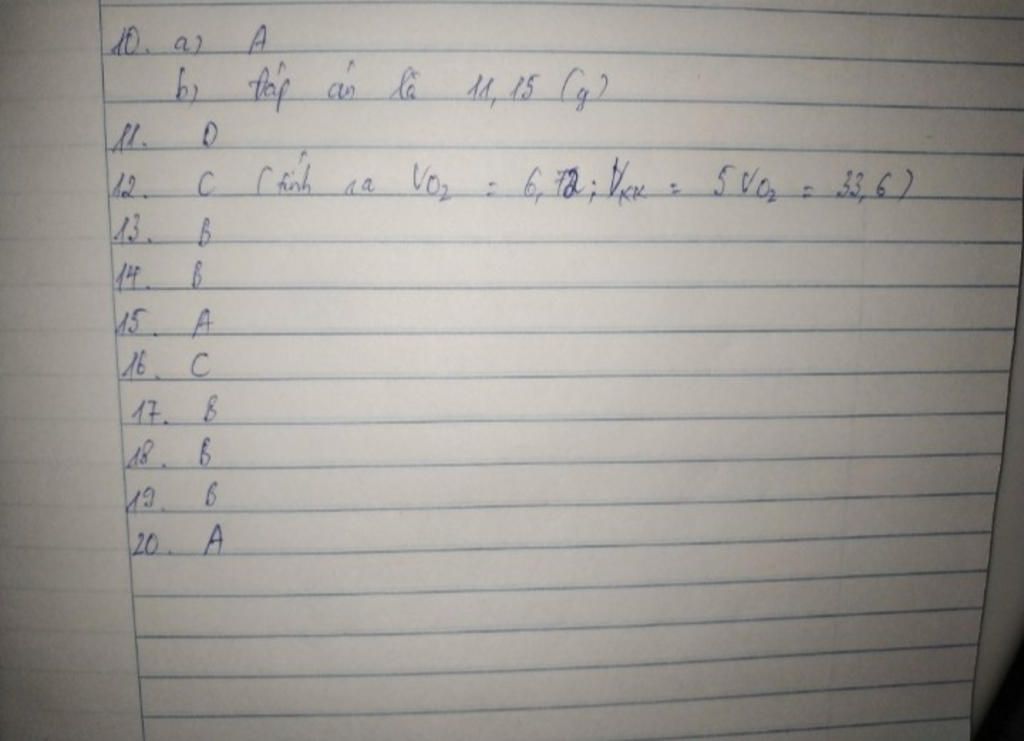 10. a) A
b) Đáp án là 11,15 (g)
11. D
12. C (tính ra VO2 = 6,72; Vkk = 5 VO2 = 33,6)
13. B
14. B
15. A
16. C
17. B
18. B
19. B
20. A